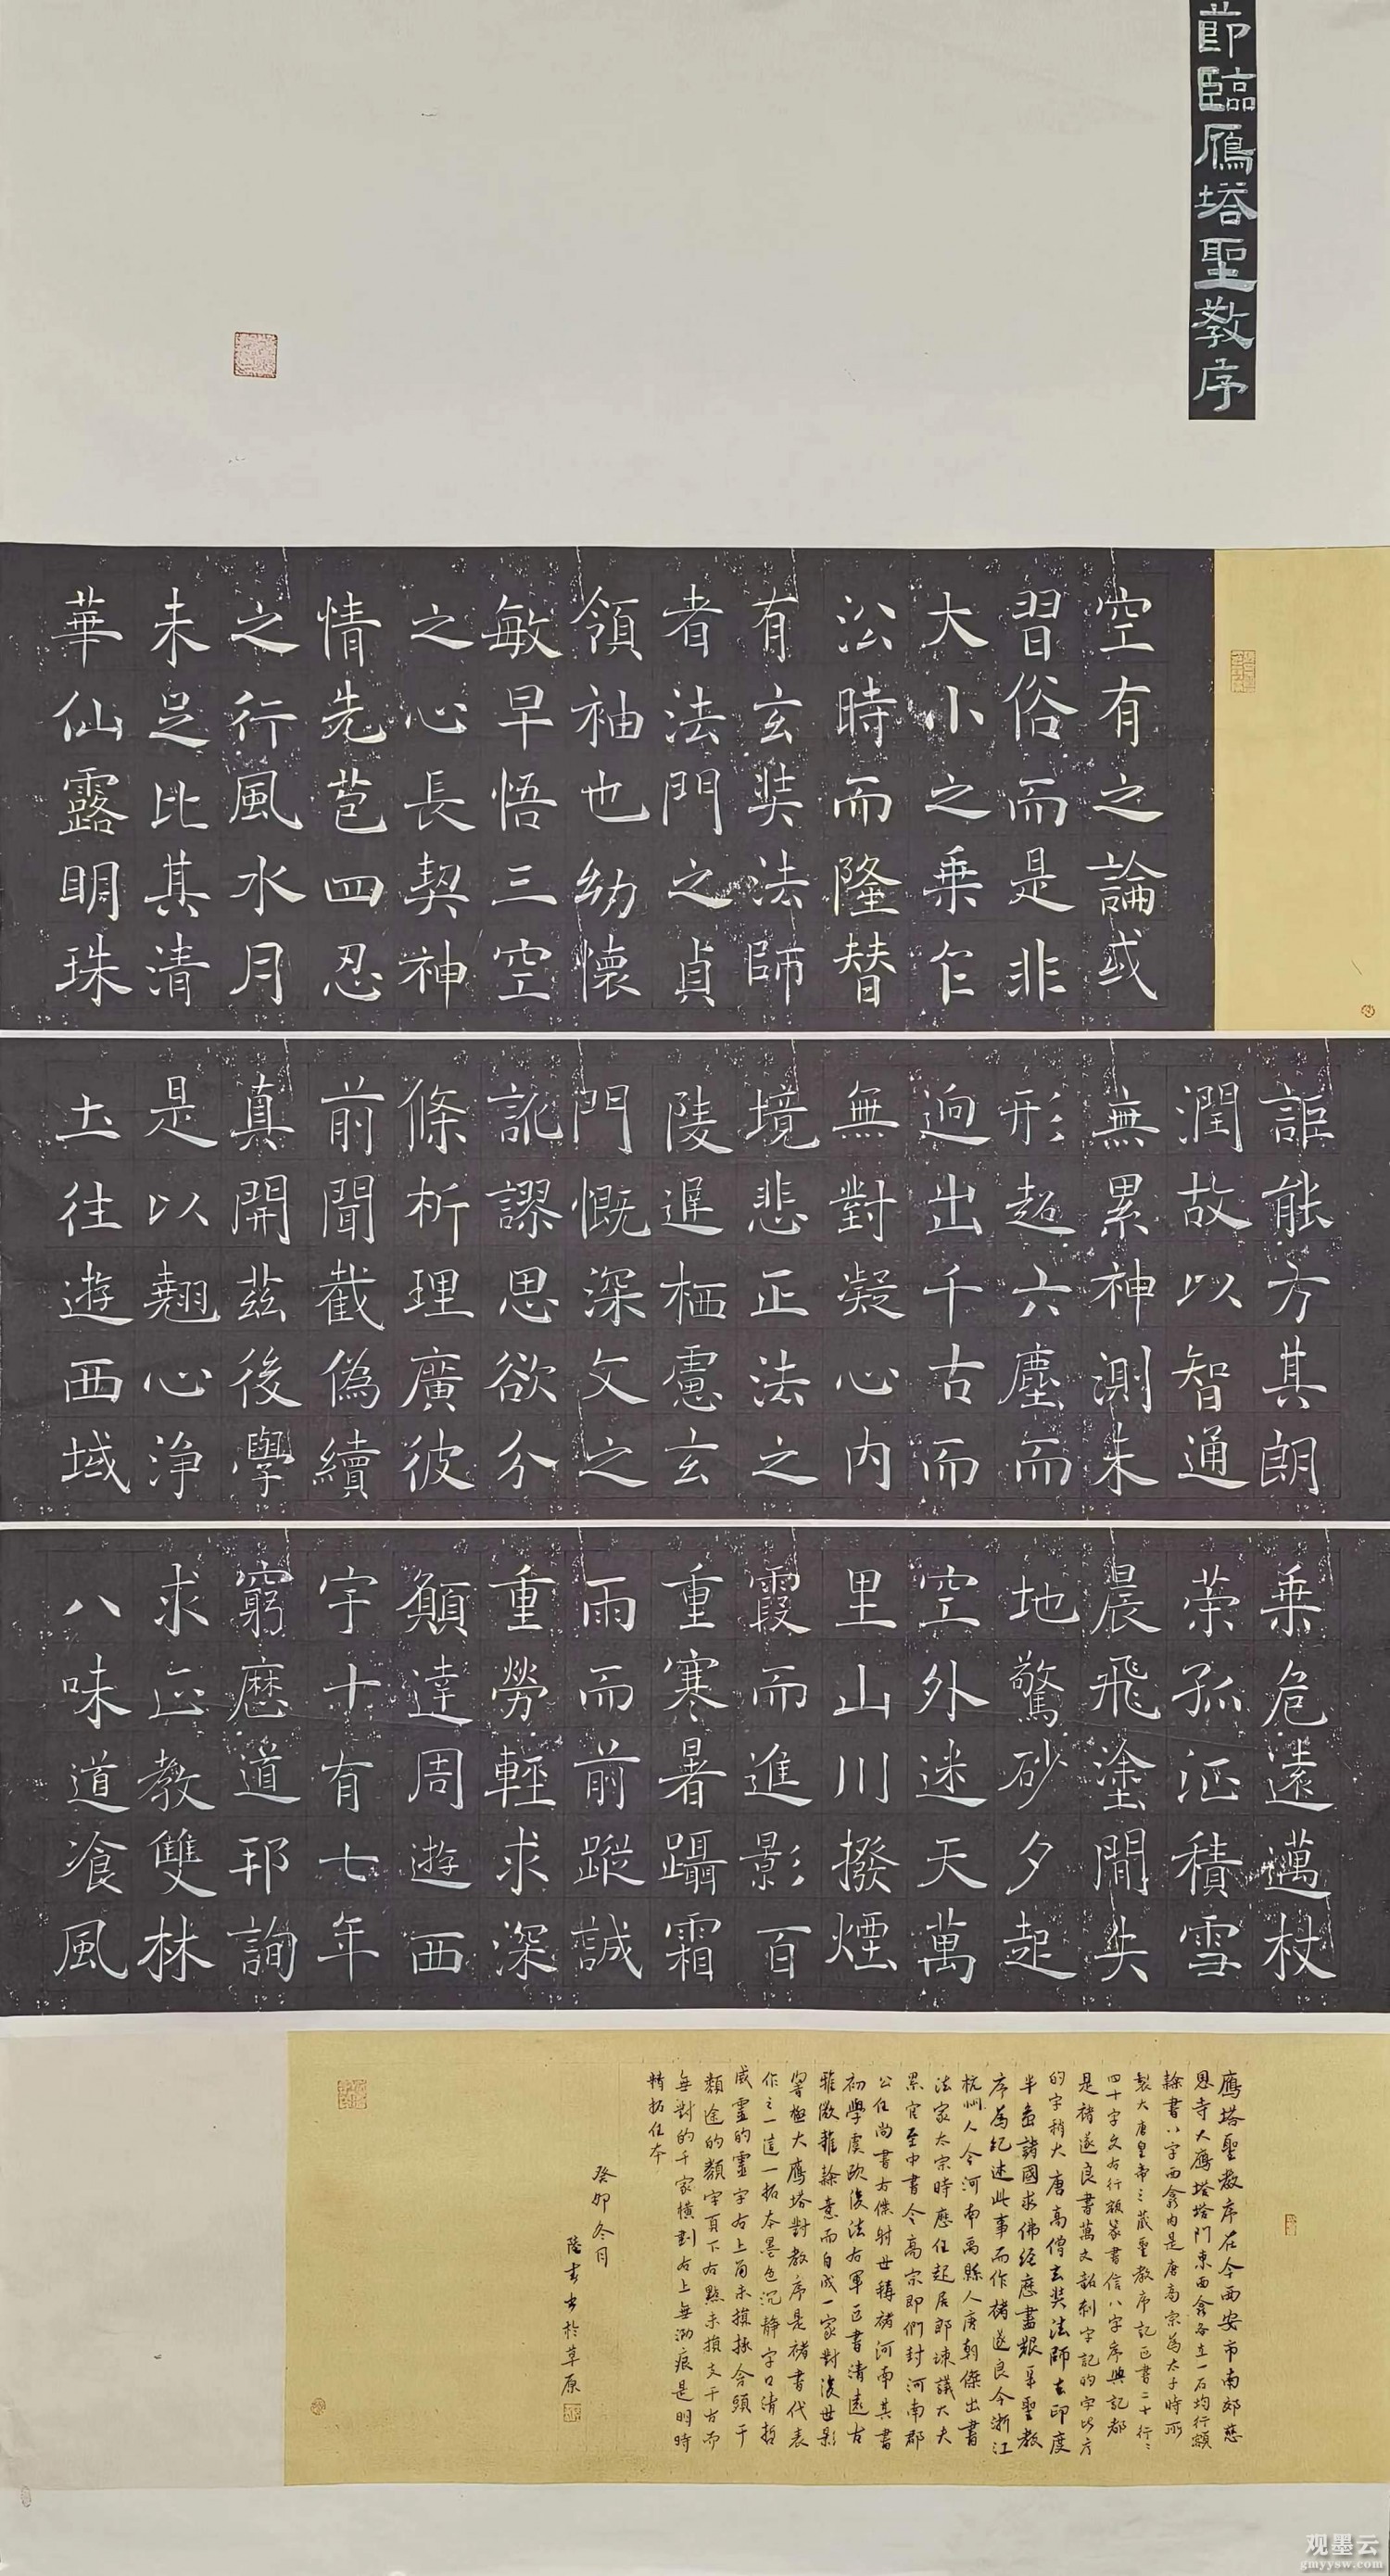 節臨雁塔聖教序
空有之論或
習俗而是非
大小之乗乍
沿時而隆替
有玄奘法師
者法門之貞
領袖也幼懷
敏早悟三空
之心長契神
情先苞四忍
之行風水月
未足比其清
華仙露明珠
詎能方其朗
潤故以智通
無累神測未
形超六塵而
迥出千古而
無對凝心内
境悲正法之
陵遲栖慮玄
門慨深文之
訛謬思欲分
條析理廣彼
前聞截偽續
真開茲後學
是以翹心浄
土往遊西域
乗危遠邁杖
策孤征積雪
晨飛塗閒失
地驚砂夕起
空外迷天萬
里山川撥煙
霞而進影百
重寒暑躡霜
雨而前蹤誠
重勞輕求深
願達周遊西
宇十有七年
窮歷道邦詢
求正教雙林
八味道飡風
雁塔聖教序在今西安市南郊慈
恩寺大雁塔塔門東西龕各立一石均行額
隸書八字西龕内是唐高宗為太子時所
製大唐皇帝三藏聖教序記正書二十行
四十字文右行額篆書信八字序與記都
是褚遂良書萬文韶刻字記的字比序
的字稍大 唐高僧玄奘法師去印度
半島諸國求佛经歷盡艱辛聖教
序為紀述此事而作褚遂良今浙江
杭州人今河南禹縣人唐朝傑出書
法家太宗時歷任起居郎諫議大夫
累官至中書令高宗即位封河南郡
公任尚書右僕射世稱褚河南其書
初學虞歐後法右軍正書清遠古
雅微雜隸意而自成一家對後世影
響極大雁塔對教序是褚書代表
作之一這一拓本墨色沉静字口清哲
威靈的靈字右上角未損拯含類于
類途的類字頁下右點未損文千古而
無對的千家横劃右上無泐痕是明時
精拓任本
癸卯冬月
陸 書於草原
观墨云
gmyysw.com